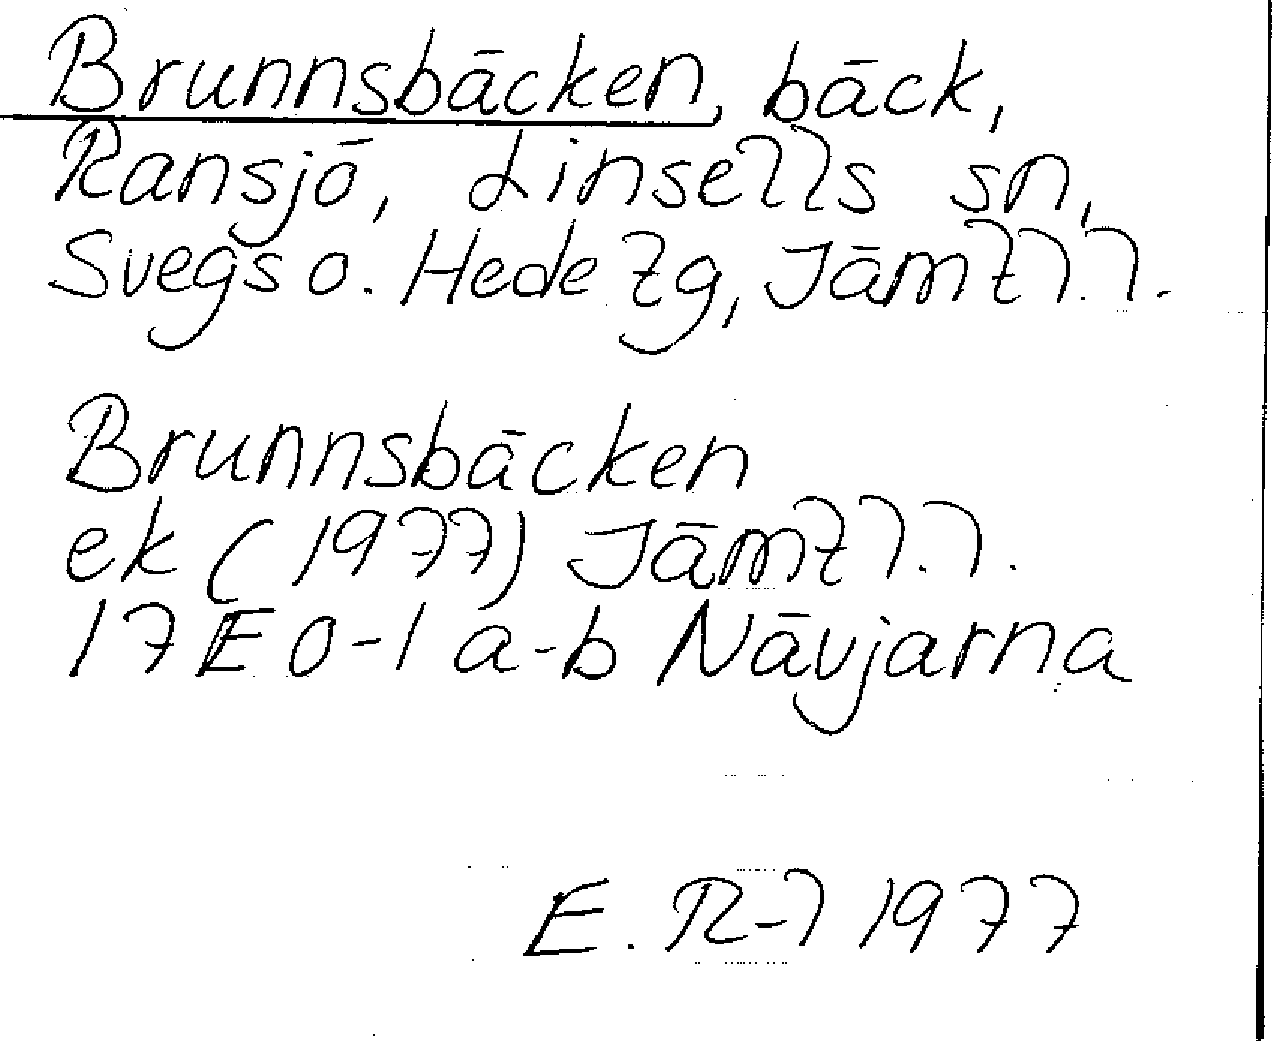 Brunnsbäcken, bäck,
Ransjö, Linsells sn,
Svegs o. Hede tg, Jämtl.l.
Brunnsbäcken
ek (1977) Jämtl.l.
17E 0-1 a-b Nävjarna
E. R-l 1977